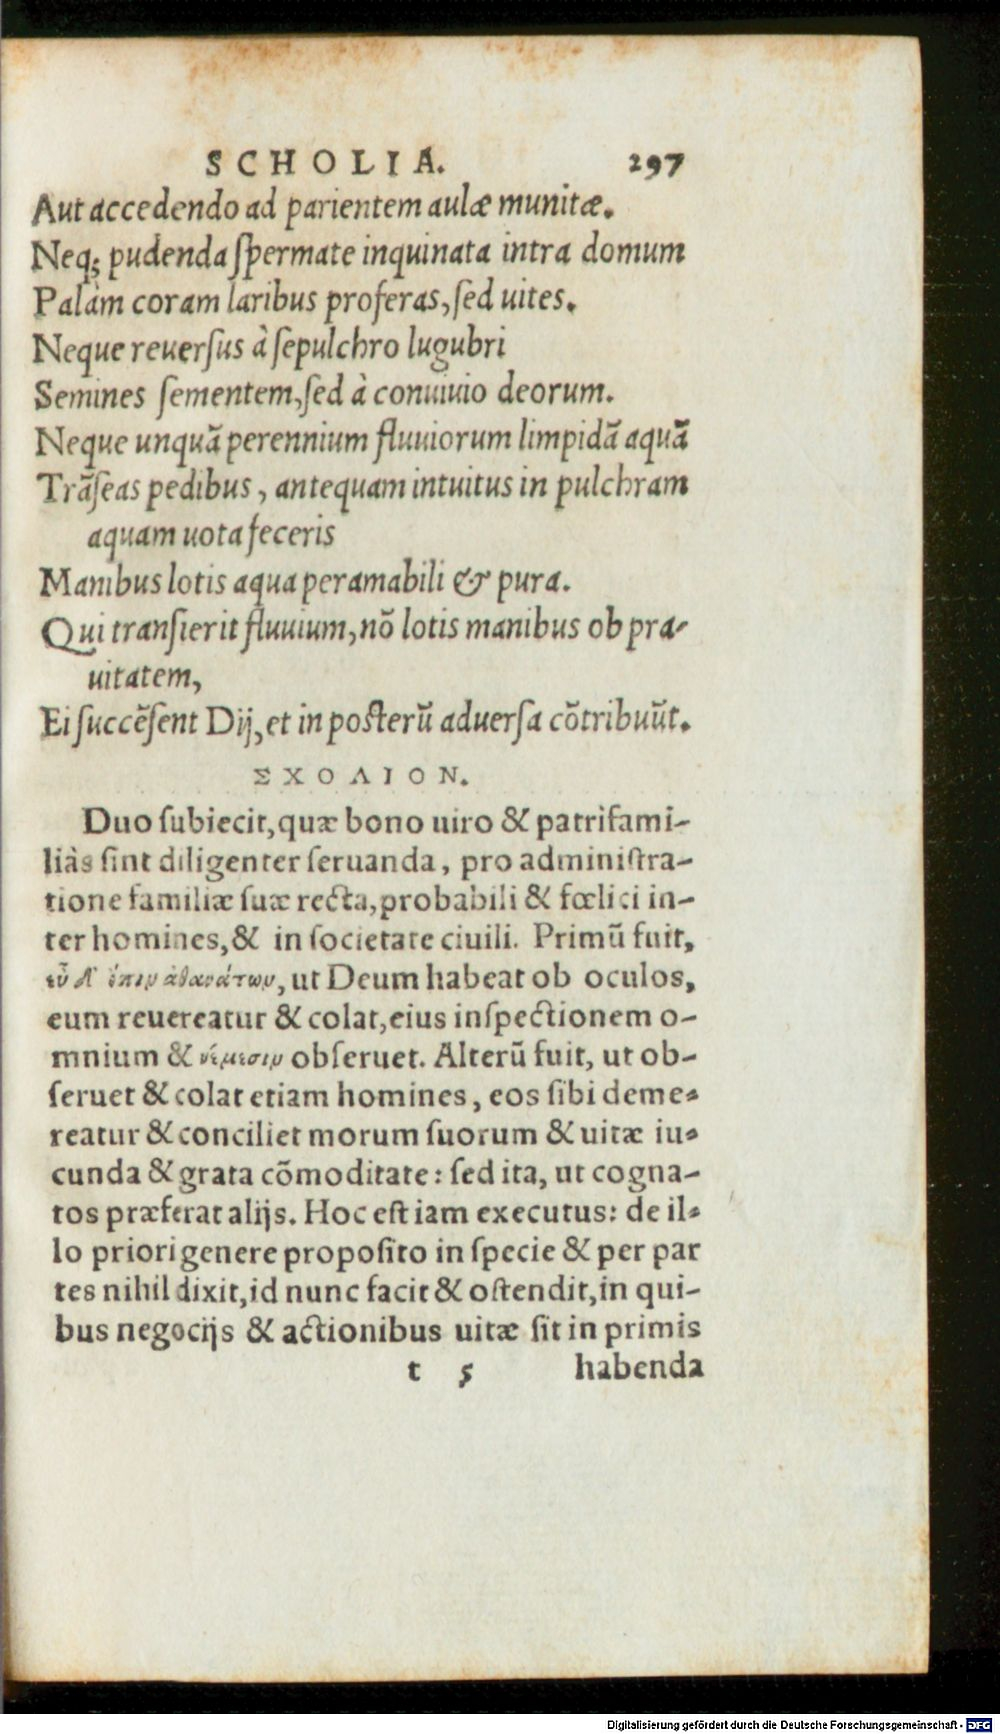 SCHOLIA. 297
Aut accedendo ad parientem aulæ munitæ.
Neq; pudenda ſpermate inquinata intra domum
Palàm coram laribus proferas, ſed uites.
Neque reuerſus à ſepulchro lugubri
Semines ſementem, ſed à conuiuio deorum.
Neque unquã perennium fluuiorum limpidã aquã
Trãſeas pedibus, antequam intuitus in pulchram
aquam uota feceris
Manibus lotis aqua peramabili & pura.
Qui tranſierit fluuium, nõ lotis manibus ob pra-
uitatem,
Ei ſuccẽſent Dij, et in poſterũ aduerſa cõtribuũt.
ΣΧΟΛΙΟΝ.
Duo ſubiecit, quæ bono uiro & patrifami-
liàs ſint diligenter ſeruanda, pro adminiſtra-
tione familiæ ſuæ recta, probabili & fœlici in-
ter homines, & in ſocietate ciuili. Primũ fuit,
ἀθανάτων, ut Deum habeat ob oculos,
eum reuereatur & colat, eius inſpectionem o-
mnium & νέμεσιν obſeruet. Alterũ fuit, ut ob-
ſeruet & colat etiam homines, eos ſibi deme-
reatur & conciliet morum ſuorum & uitæ iu-
cunda & grata cõmoditate: ſed ita, ut cogna-
tos præferat alijs. Hoc eſt iam executus: de il-
lo priori genere propoſito in ſpecie & per par
tes nihil dixit, id nunc facit & oſtendit, in qui-
bus negocijs & actionibus uitæ ſit in primis
t 5 habenda
Digitalisierung gefördert durch die Deutsche Forschungsgemeinschaft - DFG